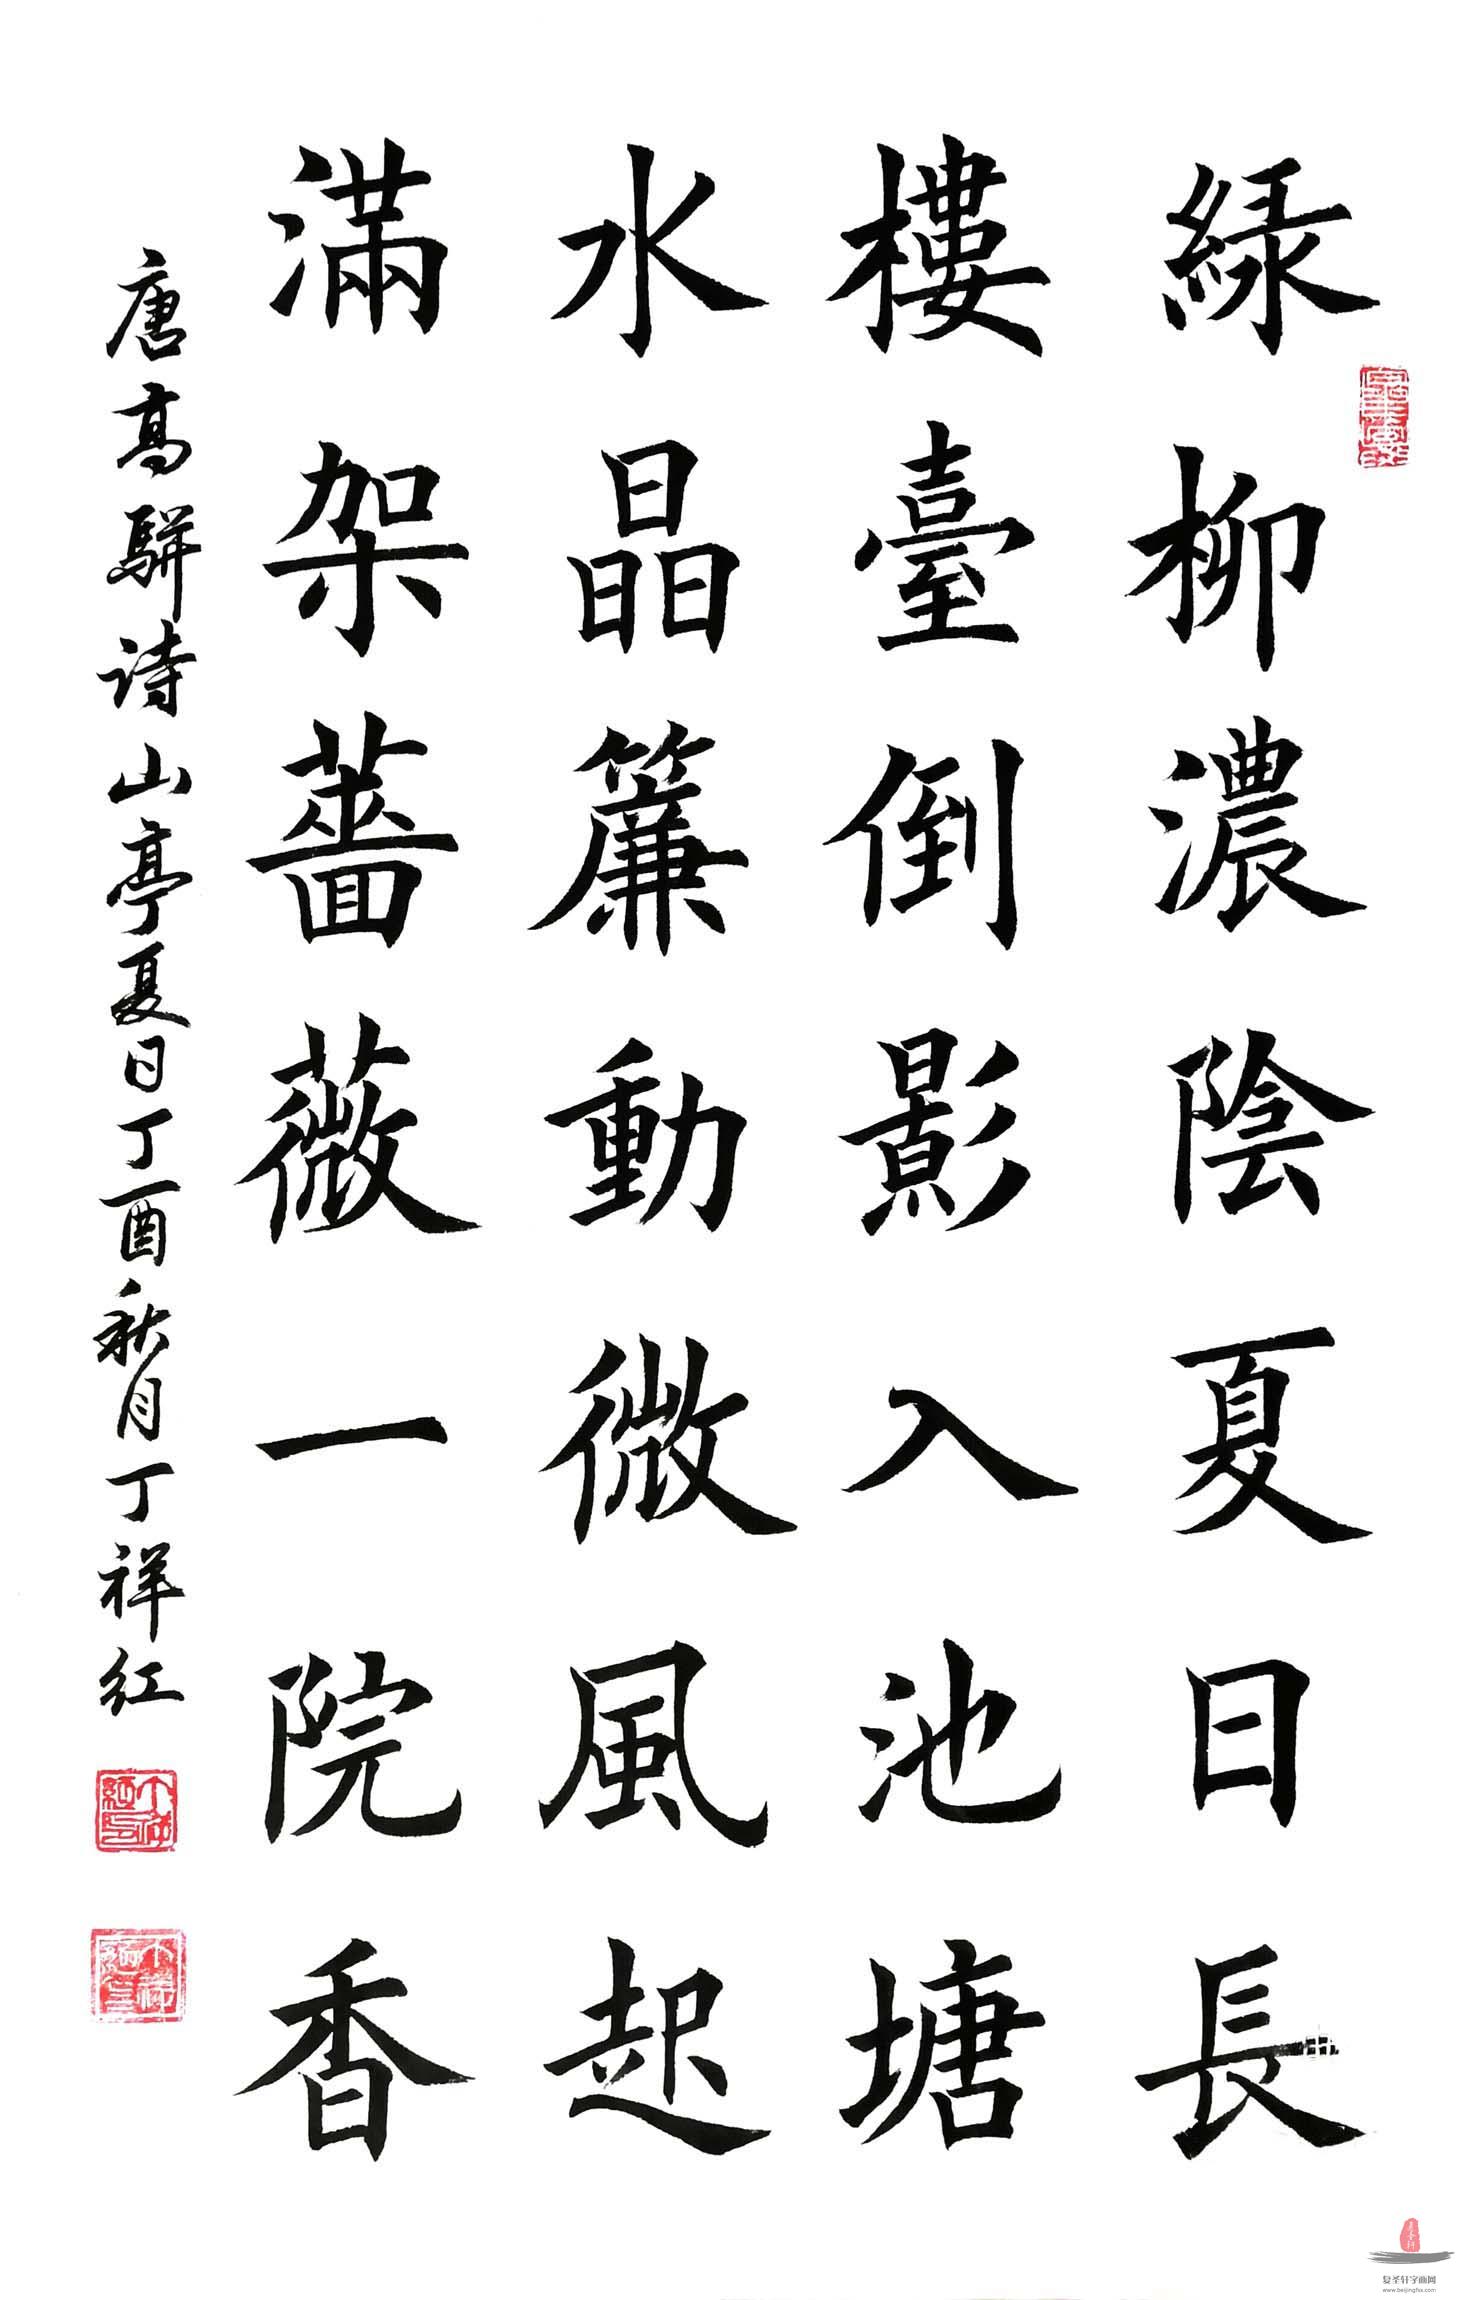 緑柳濃陰夏日長
樓臺倒影入池塘
水晶簾動微風起
滿架薔薇一院香
唐高駢诗山亭夏日丁酉秋月丁祥红
复圣轩字画网
www.beijingfsx.com